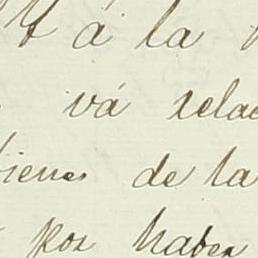 Y á la
vá relac
bienes de la
por haber